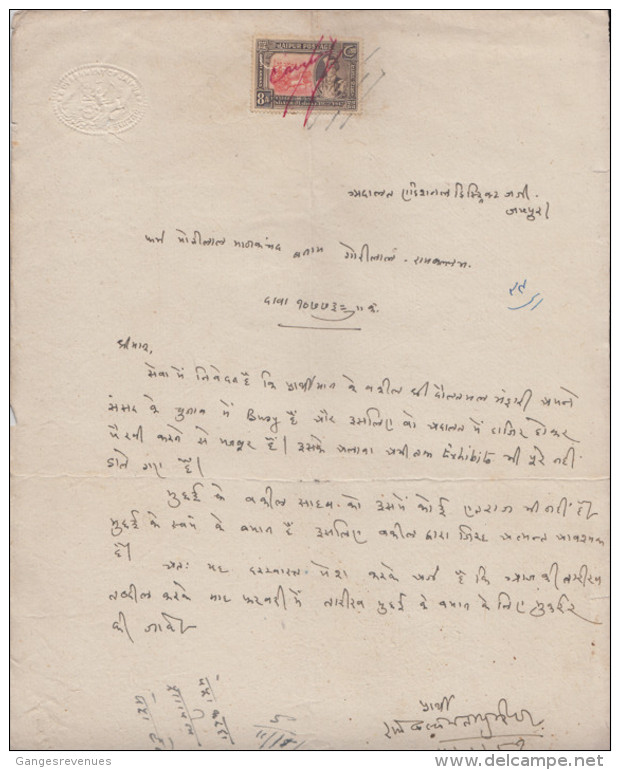 JAIPUR POSTAGE
अदालत एडिशनल डिस्ट्रिक्ट जजी.
जयपुर।
फर्म मोतीलाल बनाम गोरीलाल.
दावा
श्रीमान,
सेवा में निवेदन है कि प्रार्थीगान के वकील श्री दौलतमल भंडारी अपने
संसद के चुनाव में Busy हैं और इसलिए वो अदालत में हाजिर होकर
पैरवी करने से मजबूर हैं। इसके अलावा अभी तक Exhibits भी पूरे नहीं
डाले गए हैं।
मुद्दई के वकील साहब को इसमें कोई एतराज भी नहीं है।
मुद्दई के स्वयं के बयान हैं इसलिए वकील द्वारा जिरह अत्यन्त आवश्यक
है।
अतः यह दरख्वास्त पेश करके अर्ज है कि आज की तारीख
तब्दील करके माह फरवरी में तारीख मुद्दई के बयान के लिए मुकर्रर
की जावे।
प्रार्थी
Gangesrevenues
delcampe.net